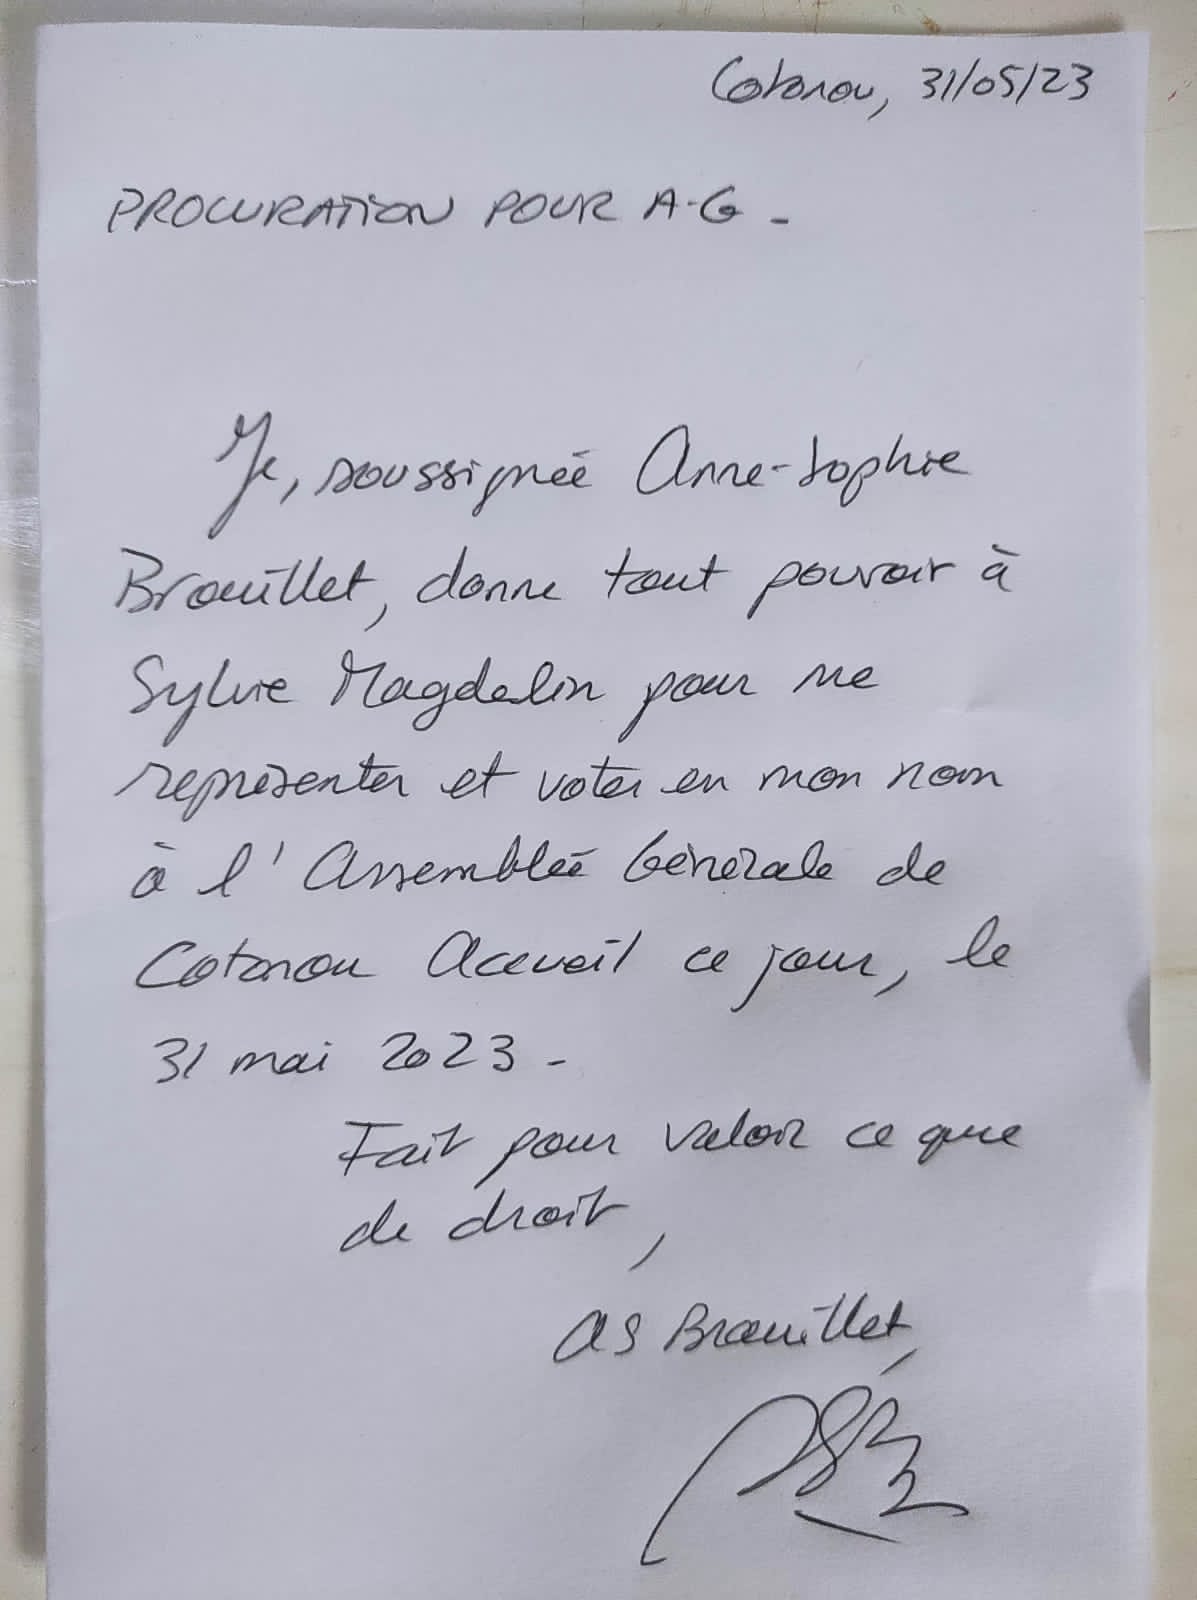 Cotonou, 31/05/23
PROCURATION POUR A-G -
Je, soussignée Anne-Sophie
Brouillet, donne tout pouvoir à
Sylvie Magdelin pour me
représenter et voter en mon nom
à l'Assemblée Générale de
Cotonou Accueil ce jour, le
31 mai 2023 -
Fait pour valoir ce que
de droit,
AS Brouillet,